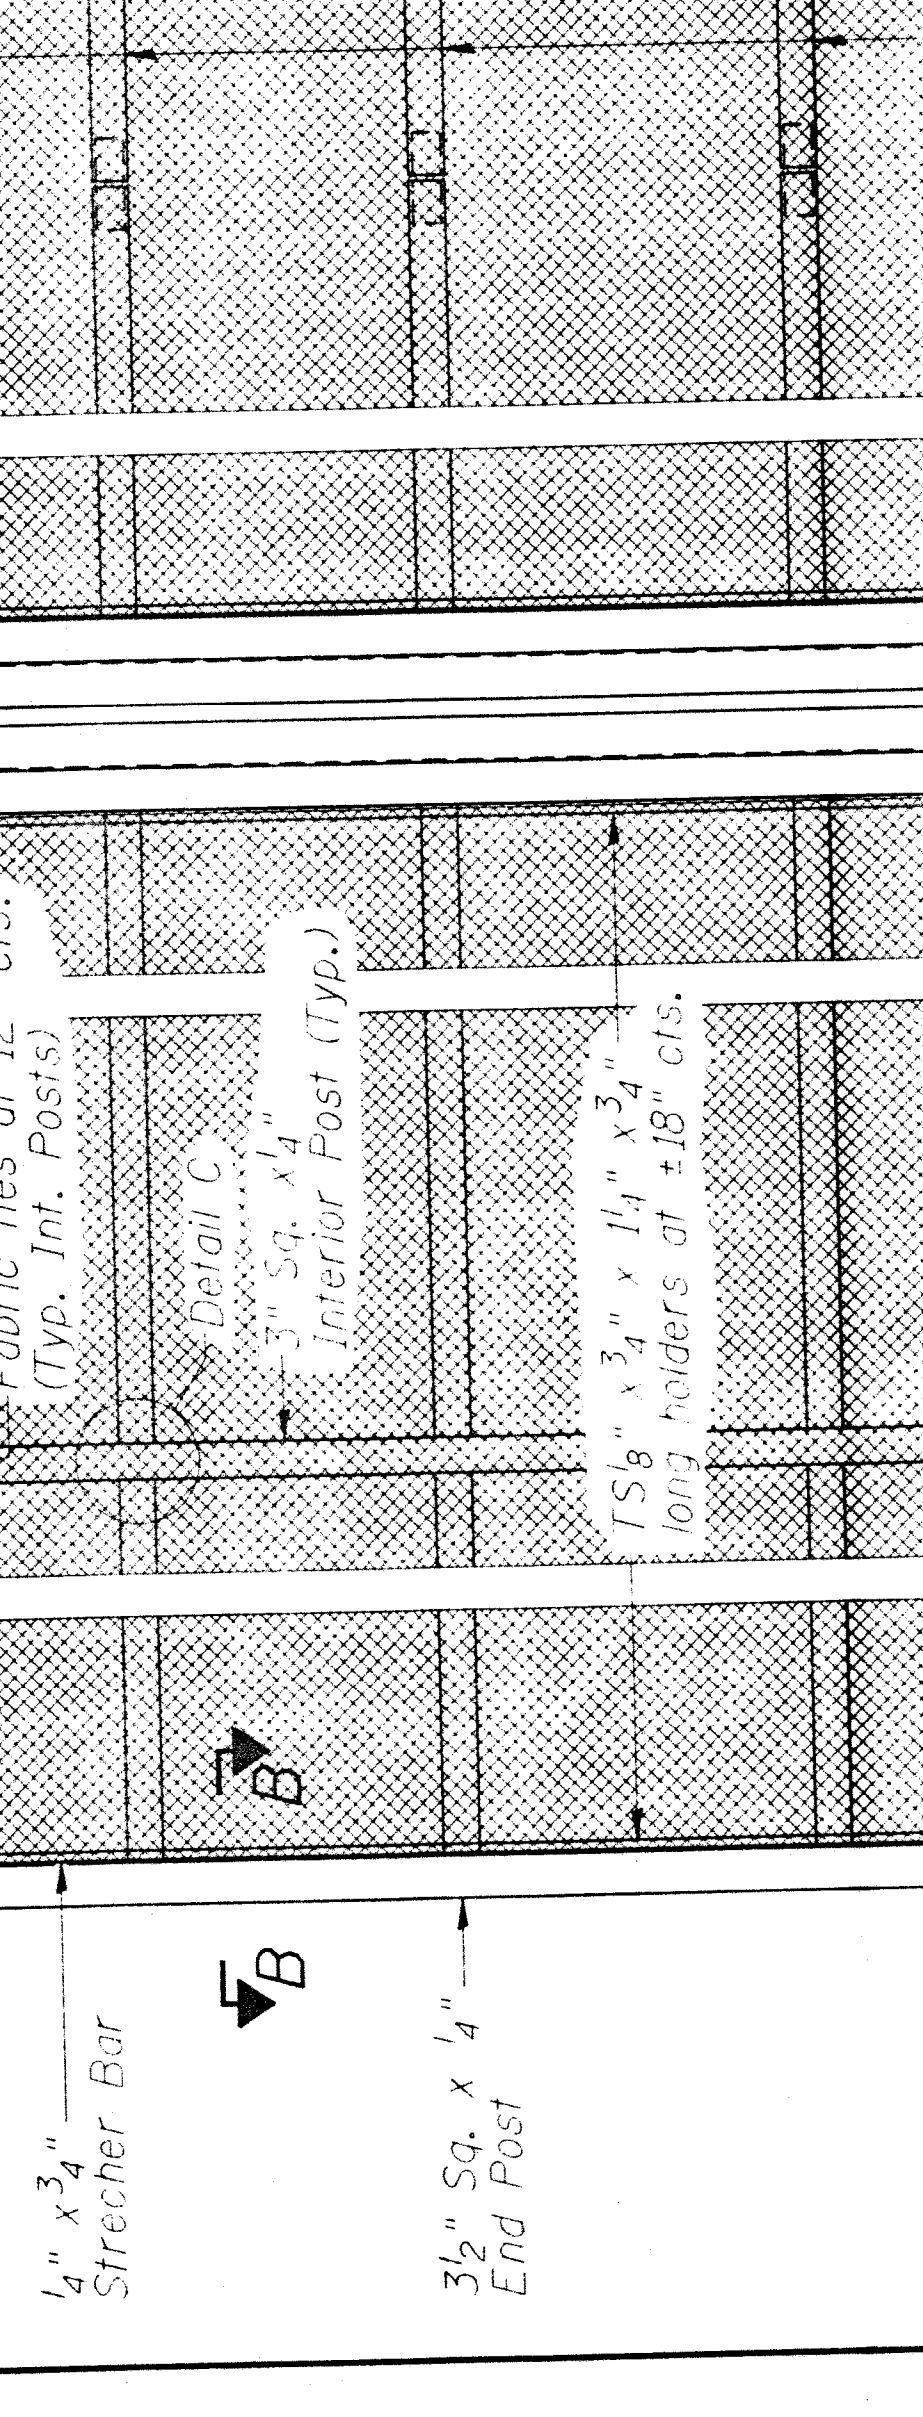 Fabric Ties at 12" cts.
(Typ. Int. Posts)
Detail C
3" Sq. x 1/4"
Interior Post (Typ.)
TS 1/8" x 3/4" x 1 1/4" x 3/4"
long holders at ±18" cts.
B
B
1/4" x 3/4"
Strecher Bar
3 1/2" Sq. x 1/4"
End Post